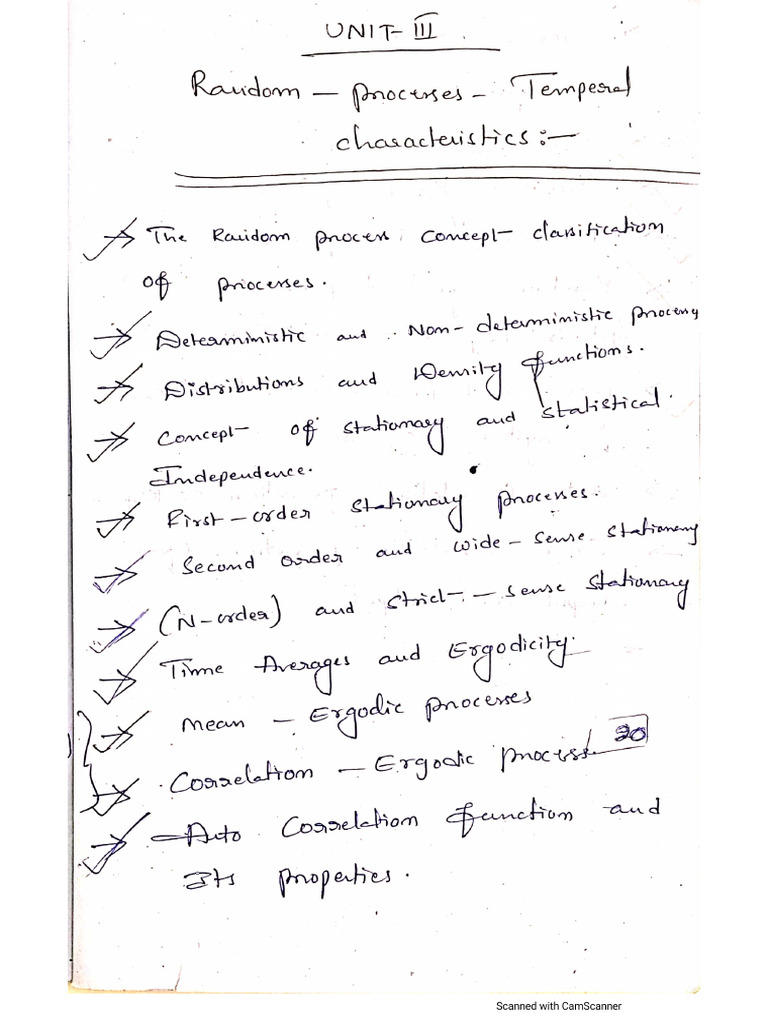 UNIT-III
Random — processes - Temperal
characteristics:—
The Random process concept- classification
of processes.
Deterministic and Non-deterministic process
Distributions and Density functions.
Concept of stationary and statistical
Independence.
First-order stationary processes.
Second order and wide-sense stationary
(N-order) and strict-sense stationary
Time Averages and Ergodicity.
Mean — Ergodic processes
20
Correlation — Ergodic process
Auto Correlation function and
Its properties.
Scanned with CamScanner